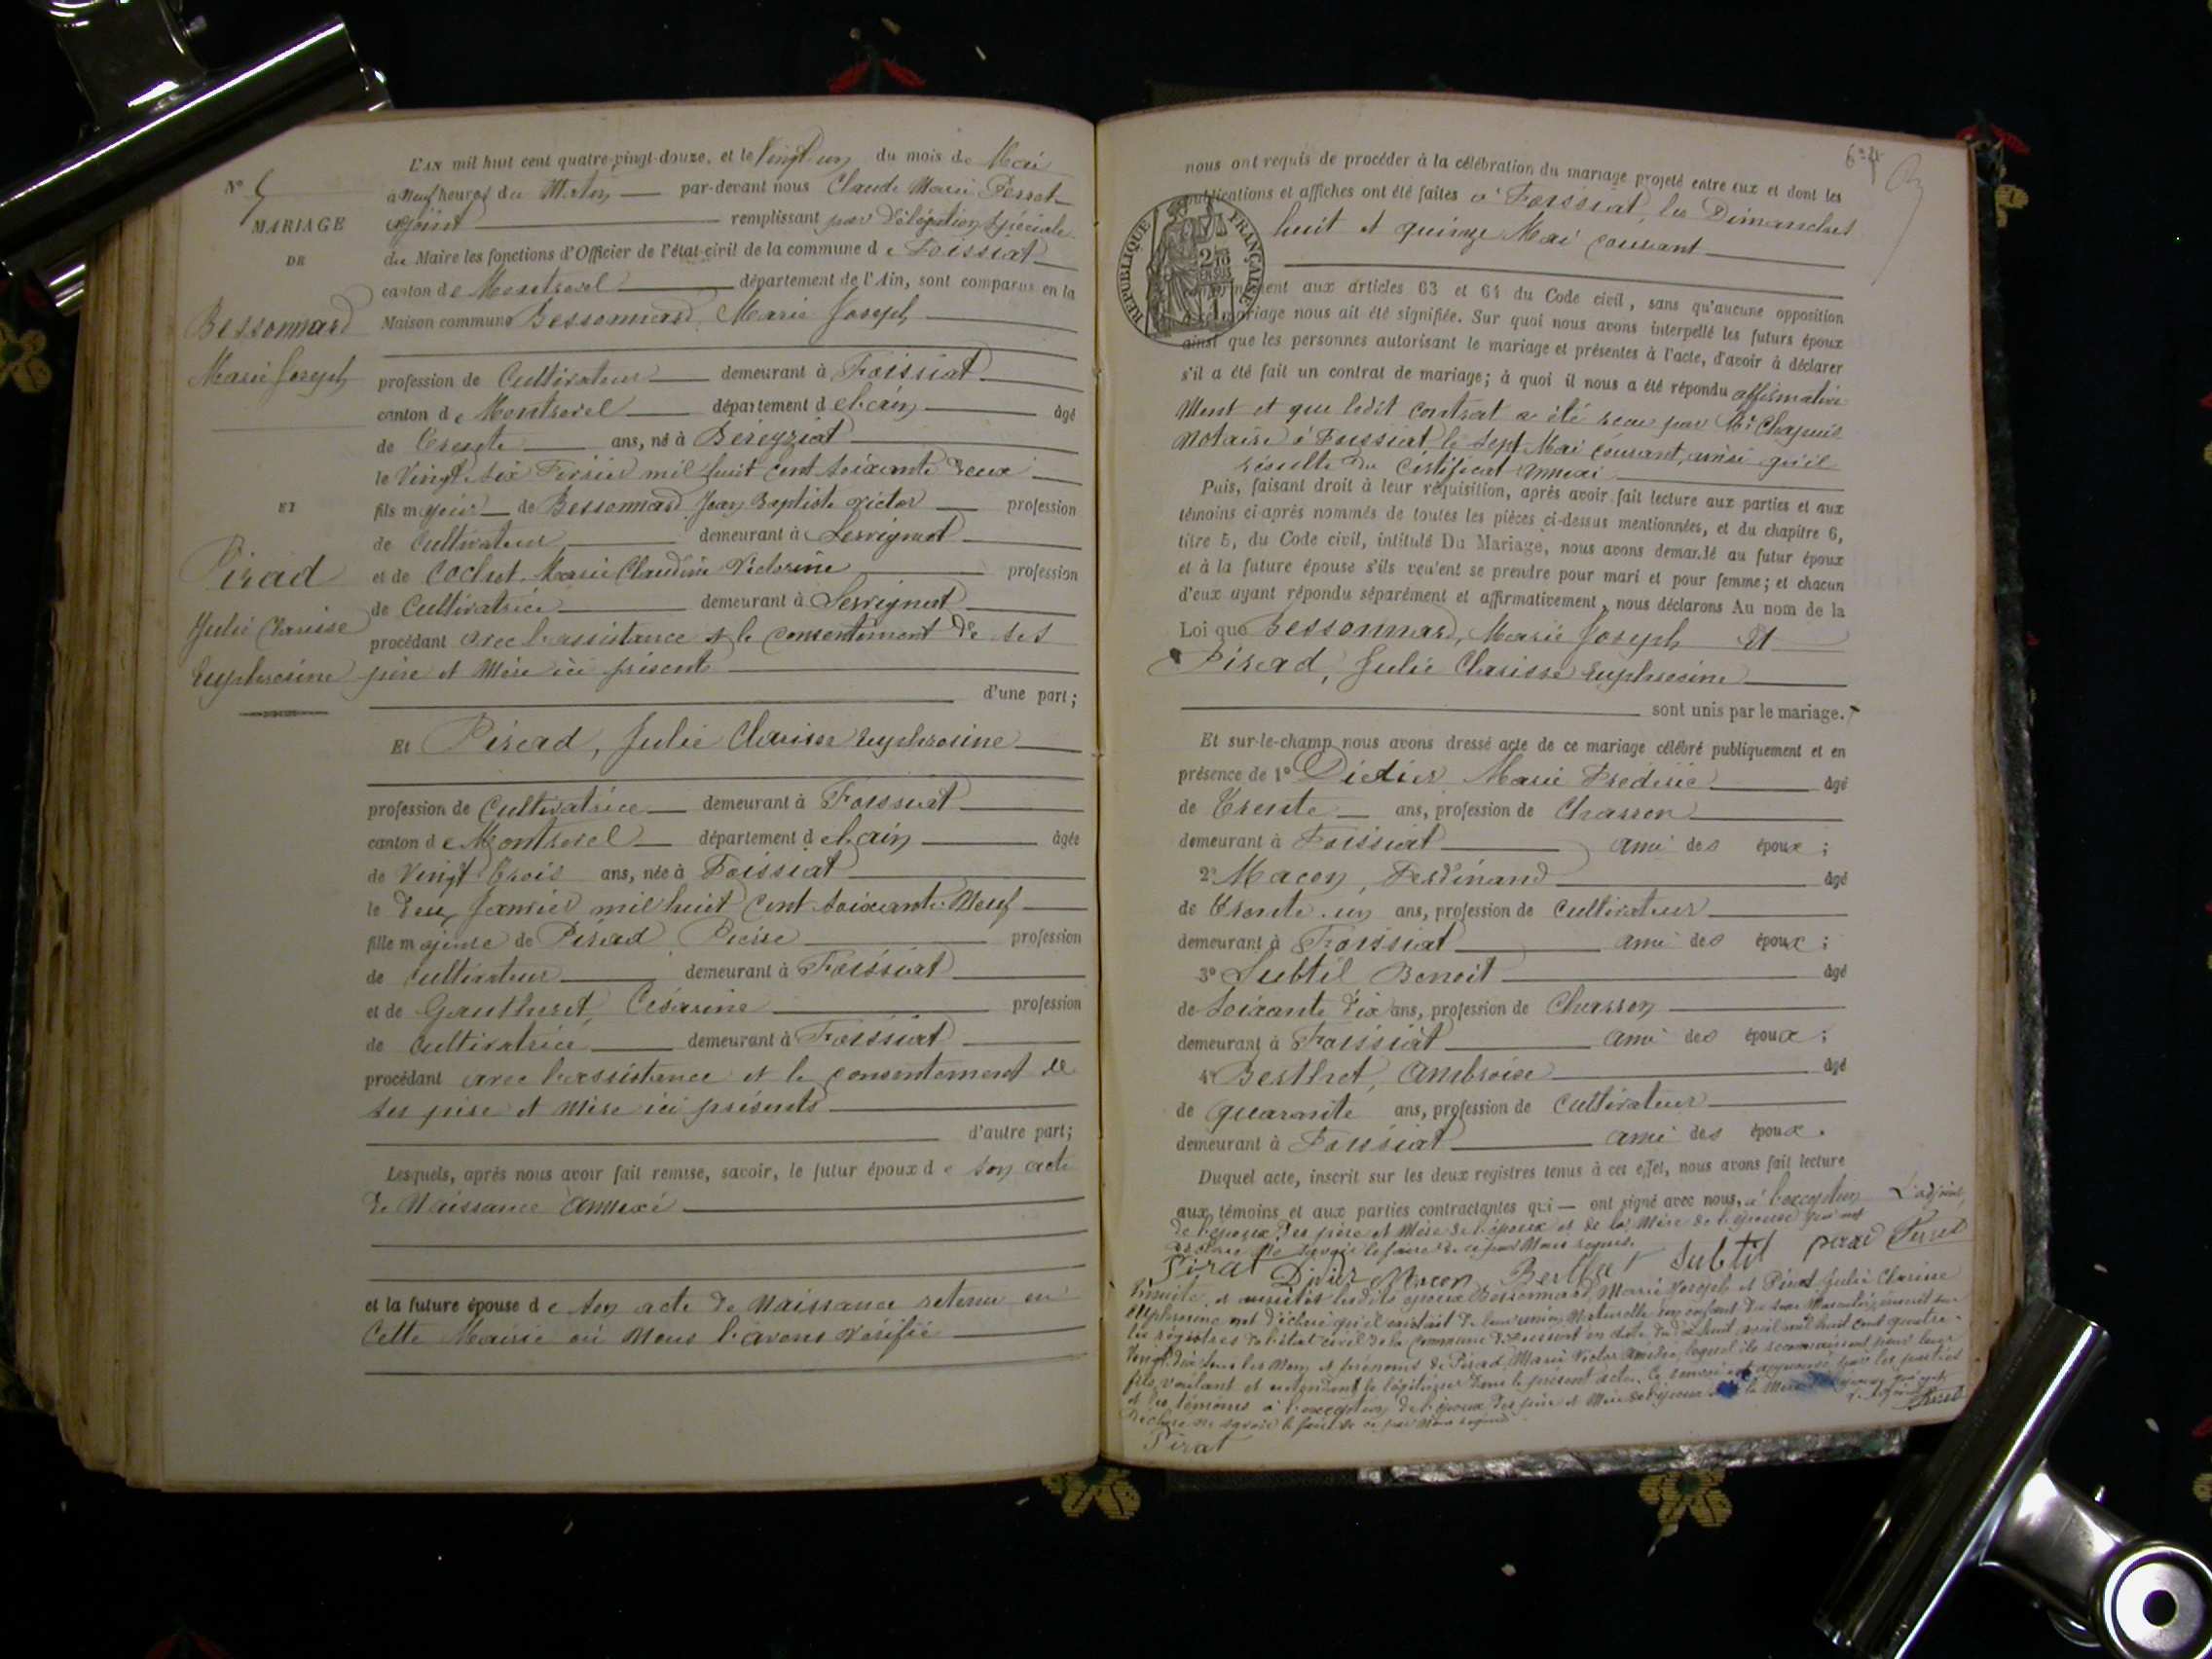 L'AN mil huit cent quatre-vingt-douze, et le Vingt-un du mois de Mai
N° 5
à Neuf heures du Matin par-devant nous Claude Marie Perret
MARIAGE
adjoint remplissant par délégation spéciale
DE
du Maire les fonctions d'Officier de l'état-civil de la commune de Foissiat
canton de Montrevel département de l'Ain, sont comparus en la
Bessonnard
Maison commune Bessonnard, Marie Joseph
Marie Joseph
profession de Cultivateur demeurant à Foissiat
canton de Montrevel département de l'ain âgé
de Trente ans, né à Béreyziat
le Vingt six Février mil huit cent soixante deux
ET
fils majeur de Bessonnard Jean Baptiste Victor profession
de Cultivateur demeurant à Lescignat
Pirad
et de Cochet Marie Claudine Victorine profession
de Cultivatrice demeurant à Lescignat
Julie Clarisse
procédant avec l'assistance et le consentement de ses
Euphrosine
père et Mère ici présents
d'une part;
Et Pirad, Julie Clarisse Euphrosine
profession de Cultivatrice demeurant à Foissiat
canton de Montrevel département de l'ain âgée
de Vingt trois ans, née à Foissiat
le deux Janvier mil huit Cent soixante Neuf
fille majeure de Pirad Pierre profession
de Cultivateur demeurant à Foissiat
et de Gauthiret, Césarine profession
de Cultivatrice demeurant à Foissiat
procédant avec l'assistance et le consentement de
ses père et Mère ici présents
d'autre part;
Lesquels, après nous avoir fait remise, savoir, le futur époux de son acte
de Naissance annexé
et la future épouse de son acte de Naissance retenu en
Cette Mairie où Nous l'avons vérifié
nous ont requis de procéder à la célébration du mariage projeté entre eux et dont les
publications et affiches ont été faites à Foissiat, les Dimanches
huit et quinze Mai courant
RÉPUBLIQUE FRANÇAISE
aux articles 63 et 64 du Code civil, sans qu'aucune opposition
mariage nous ait été signifiée. Sur quoi nous avons interpellé les futurs époux
ainsi que les personnes autorisant le mariage et présentes à l'acte, d'avoir à déclarer
s'il a été fait un contrat de mariage; à quoi il nous a été répondu affirmative
Ment et que ledit contrat a été reçu par Mr Chapuis
Notaire à Foissiat le sept Mai courant, ainsi qu'il
résulte du Certificat annexé
Puis, faisant droit à leur réquisition, après avoir fait lecture aux parties et aux
témoins ci-après nommés de toutes les pièces ci-dessus mentionnées, et du chapitre 6,
titre 5, du Code civil, intitulé Du Mariage, nous avons demandé au futur époux
et à la future épouse s'ils veulent se prendre pour mari et pour femme; et chacun
d'eux ayant répondu séparément et affirmativement, nous déclarons Au nom de la
Loi que Bessonnard, Marie Joseph Et
Pirad, Julie Clarisse Euphrosine
sont unis par le mariage.
Et sur-le-champ nous avons dressé acte de ce mariage célébré publiquement et en
présence de 1° Didier Marie Frédéric âgé
de Trente ans, profession de Charron
demeurant à Foissiat ami des époux;
2° Macon, Ferdinand âgé
de Trente-un ans, profession de Cultivateur
demeurant à Foissiat ami des époux;
3° Subtil Benoit âgé
de Soixante dix ans, profession de Charron
demeurant à Foissiat ami des époux;
4° Berthet, Ambroise âgé
de quarante ans, profession de Cultivateur
demeurant à Foissiat ami des époux.
Duquel acte, inscrit sur les deux registres tenus à cet effet, nous avons fait lecture
aux témoins et aux parties contractantes qui ont signé avec nous, à l'exception
L'adjoint,
de l'époux, des père et Mère de l'époux et de la Mère de l'épouse qui ont
déclaré ne savoir le faire de ce par Nous requis.
Pirat Didier Macon Berthet Subtil Perret
Ensuite, lesdits époux Bessonnard Marie Joseph et Pirad Julie Clarisse
Euphrosine ont déclaré qu'il existait de leur union Naturelle un enfant du sexe Masculin, inscrit sur
les registres de l'état civil de la Commune de Foissiat en date du dix huit avril mil huit cent quatre-
Vingt dix sous les Nom et prénoms de Pirad Marie Victor Amédée, lequel ils reconnaissent pour leur
fils, voulant et entendant le légitimer dans le présent acte. Ce renvoi est approuvé par les parties
et les témoins à l'exception de l'époux, des père et Mère de l'époux la Mère qui ont
déclaré ne savoir le faire de ce par Nous requis
Perret
Pirat